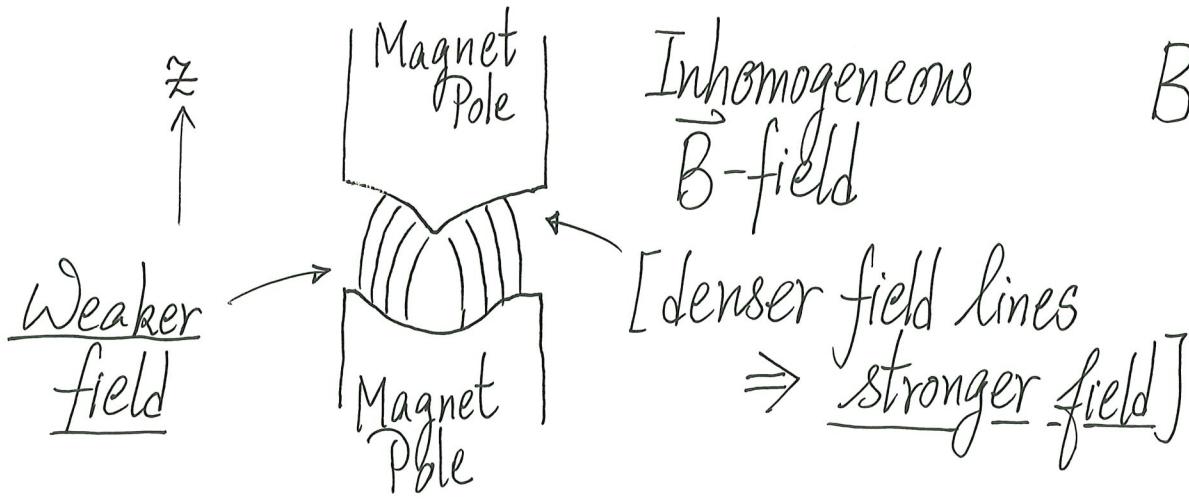 z
Magnet
Pole
Inhomogeneous
B⃗-field
B
Weaker
field
[denser field lines
⇒ stronger field]
Magnet
Pole